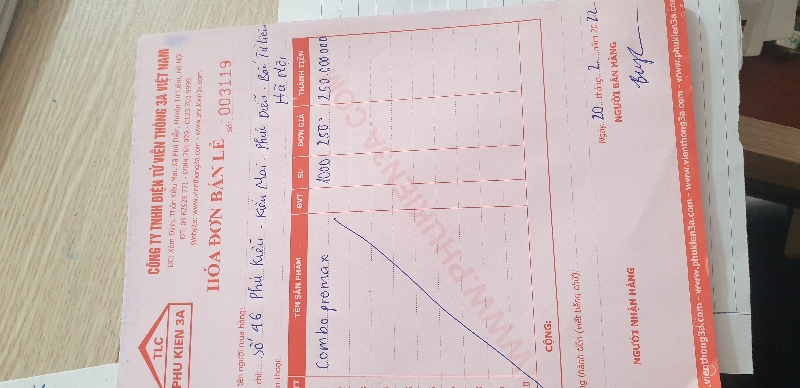 TLC
PHU KIEN 3A
CÔNG TY TNHH ĐIỆN TỬ VIỄN THÔNG 3A VIỆT NAM
ĐC: Xóm Đình, Thôn Kiều Mai, Xã Phú Diễn, Huyện Từ Liêm, Hà Nội
ĐT: 04 62929 771 - 0984 764 929 - 0123 703 9999
Website: www.vienthong3a.com - www.phukien3a.com
HÓA ĐƠN BÁN LẺ
Số: 003119
tên người mua hàng:
chỉ: Số 46 Phú Kiều - Kiều Mai - Phúc Diễn - Bắc Từ Liêm
Hà Nội
thoại:
TT TÊN SẢN PHẨM ĐVT SL ĐƠN GIÁ THÀNH TIỀN
Combo promax 1000 250 250.000.000
WWW.PHUKIEN3A.COM
10
CỘNG:
thành tiền (viết bằng chữ):
Ngày 20 tháng 2 năm 2022
NGƯỜI NHẬN HÀNG NGƯỜI BÁN HÀNG
.vienthong3a.com - www.phukien3a.com - www.vienthong3a.com - www.phukien3a.com